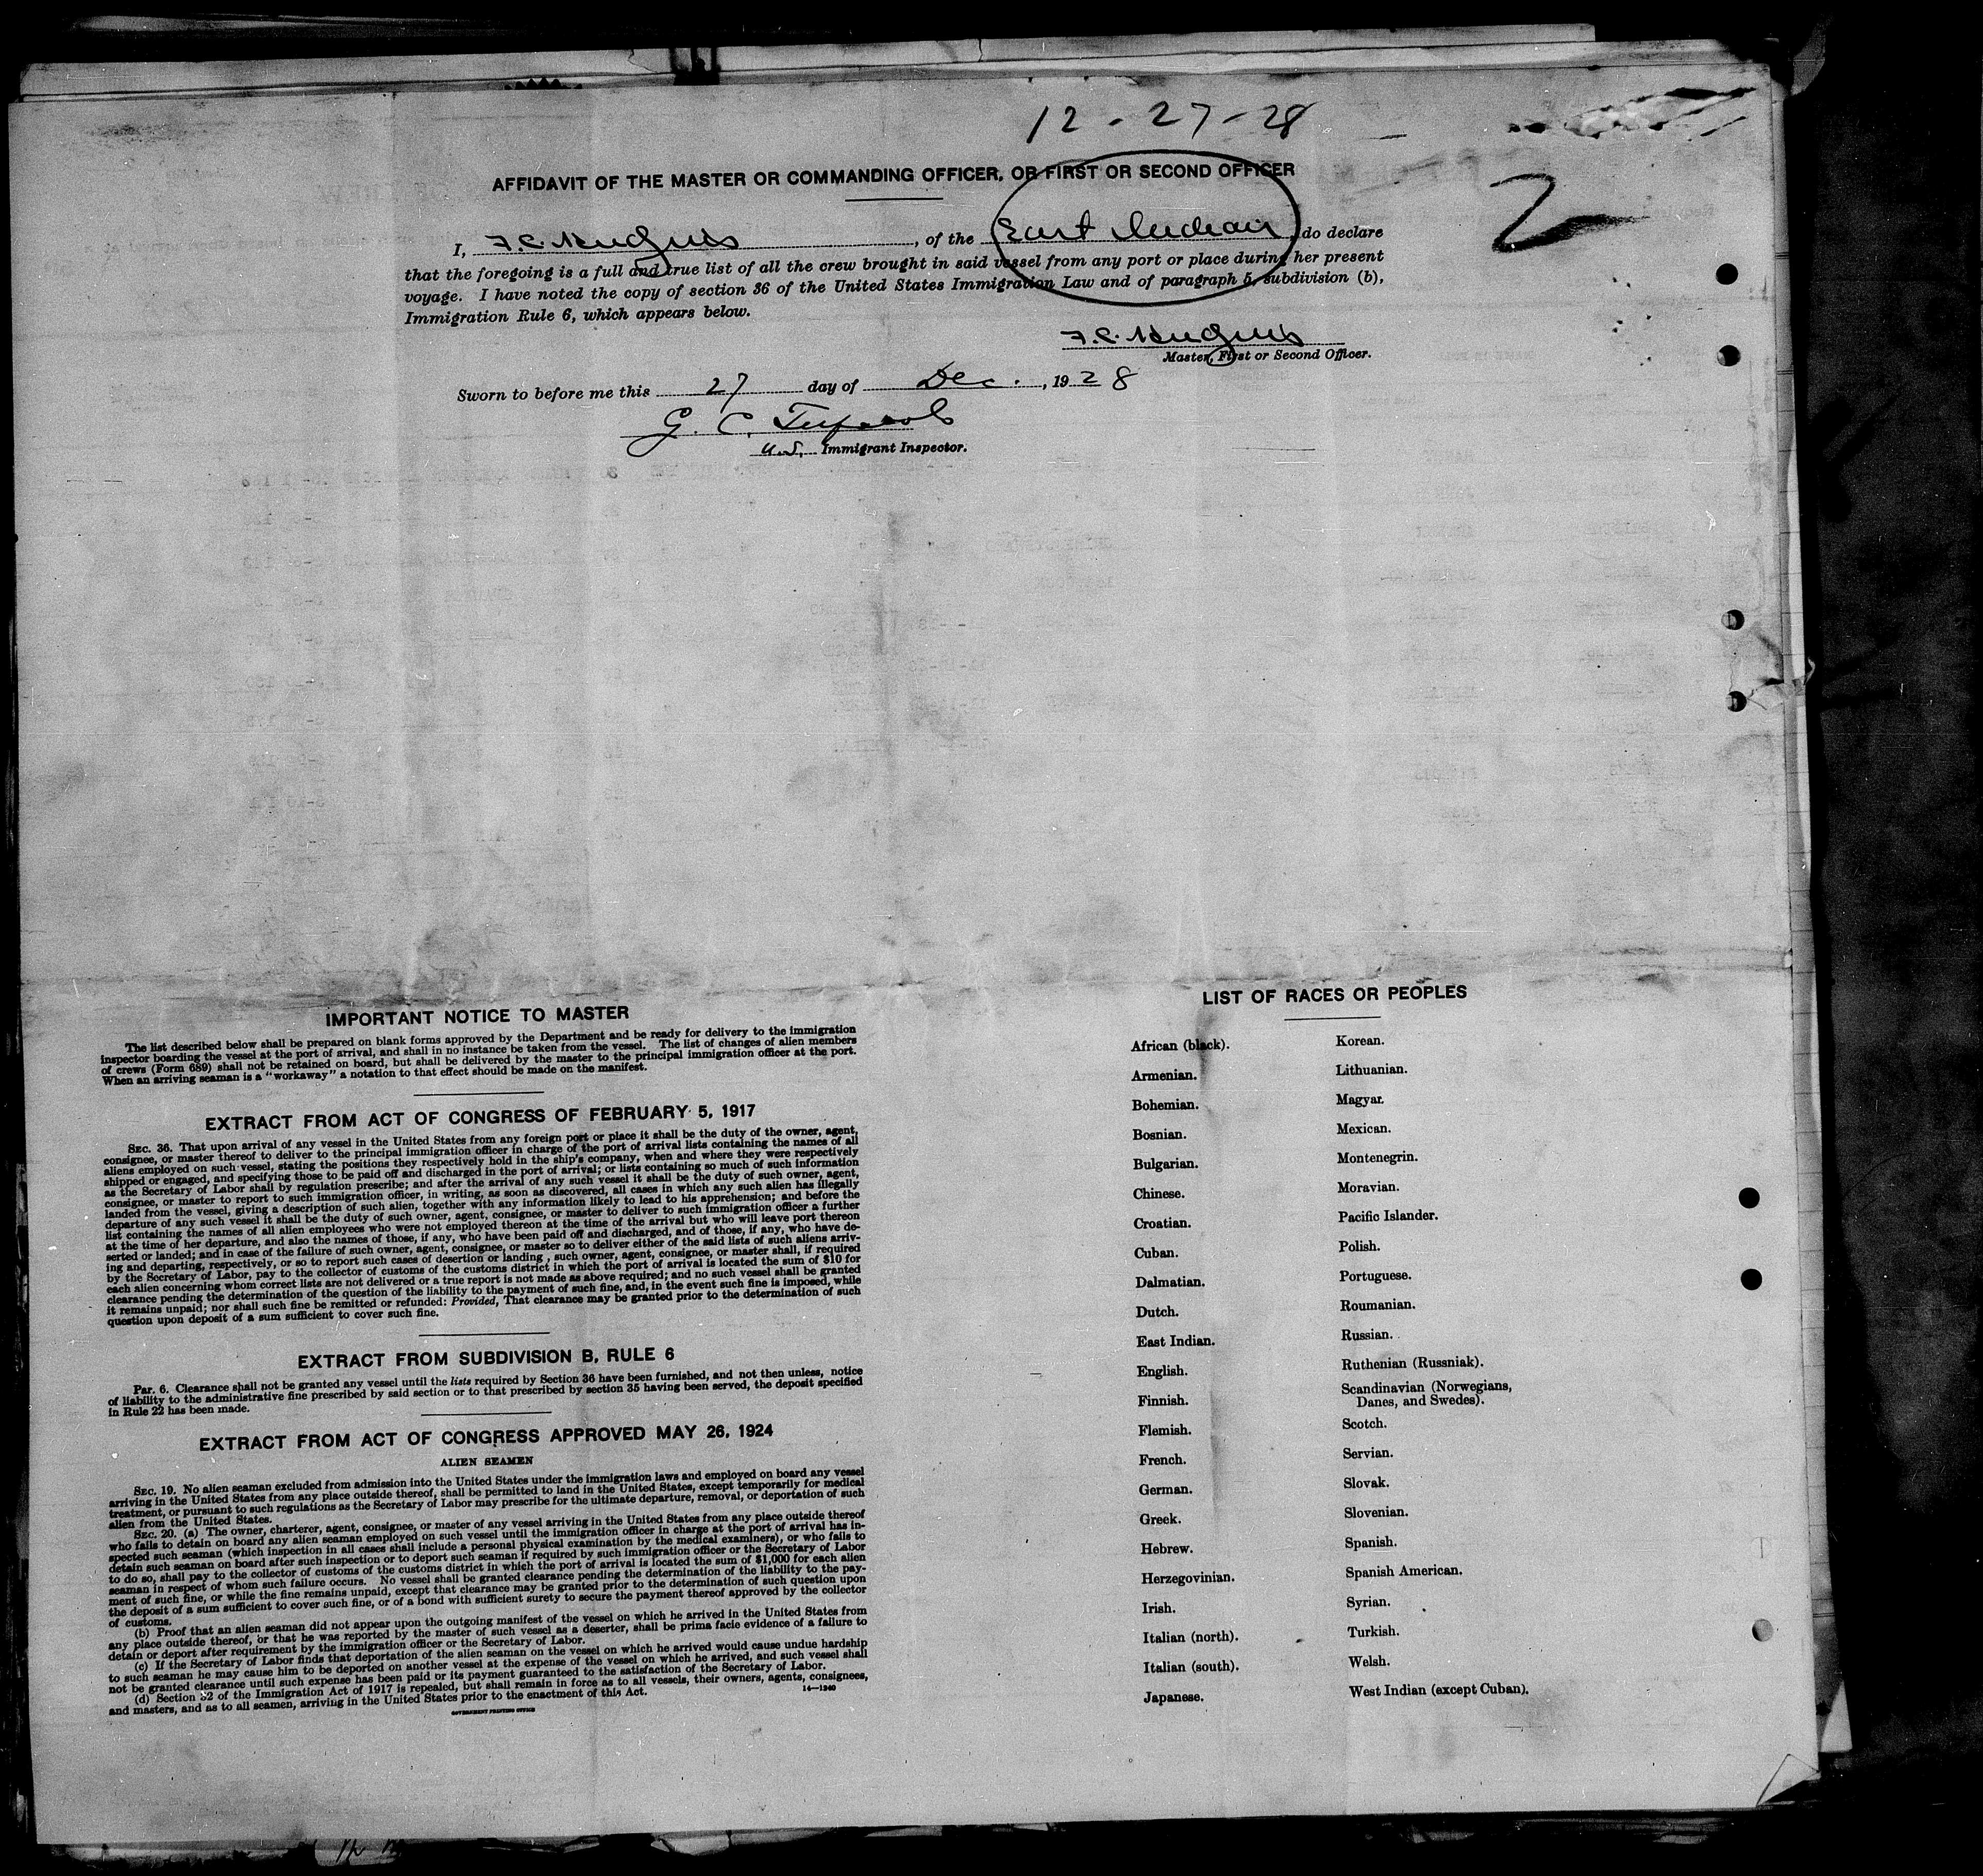 12-27-28
2
AFFIDAVIT OF THE MASTER OR COMMANDING OFFICER, OR FIRST OR SECOND OFFICER
I, F.C. , of the East Indian, do declare
that the foregoing is a full and true list of all the crew brought in said vessel from any port or place during her present
voyage. I have noted the copy of section 36 of the United States Immigration Law and of paragraph 5, subdivision (b),
Immigration Rule 6, which appears below.
F.C.
Master, First or Second Officer.
Sworn to before me this 27 day of Dec., 1928
G. C.
U.S. Immigrant Inspector.
IMPORTANT NOTICE TO MASTER
The list described below shall be prepared on blank forms approved by the Department and be ready for delivery to the immigration
inspector boarding the vessel at the port of arrival, and shall in no instance be taken from the vessel. The list of changes of alien members
of crews (Form 689) shall not be retained on board, but shall be delivered by the master to the principal immigration officer at the port.
When an arriving seaman is a "workaway" a notation to that effect should be made on the manifest.
EXTRACT FROM ACT OF CONGRESS OF FEBRUARY 5, 1917
SEC. 36. That upon arrival of any vessel in the United States from any foreign port or place it shall be the duty of the owner, agent,
consignee, or master thereof to deliver to the principal immigration officer in charge of the port of arrival lists containing the names of all
aliens employed on such vessel, stating the positions they respectively hold in the ship's company, when and where they were respectively
shipped or engaged, and specifying those to be paid off and discharged in the port of arrival; or lists containing so much of such information
as the Secretary of Labor shall by regulation prescribe; and after the arrival of any such vessel it shall be the duty of such owner, agent,
consignee, or master to report to such immigration officer, in writing, as soon as discovered, all cases in which any such alien has illegally
landed from the vessel, giving a description of such alien, together with any information likely to lead to his apprehension; and before the
departure of any such vessel it shall be the duty of such owner, agent, consignee, or master to deliver to such immigration officer a further
list containing the names of all alien employees who were not employed thereon at the time of the arrival but who will leave port thereon
at the time of her departure, and also the names of those, if any, who have been paid off and discharged, and of those, if any, who have de-
serted or landed; and in case of the failure of such owner, agent, consignee, or master so to deliver either of the said lists of such aliens arriv-
ing and departing, respectively, or so to report such cases of desertion or landing, such owner, agent, consignee, or master shall, if required
by the Secretary of Labor, pay to the collector of customs of the customs district in which the port of arrival is located the sum of $10 for
each alien concerning whom correct lists are not delivered or a true report is not made as above required; and no such vessel shall be granted
clearance pending the determination of the question of the liability to the payment of such fine, and, in the event such fine is imposed, while
it remains unpaid; nor shall such fine be remitted or refunded: Provided, That clearance may be granted prior to the determination of such
question upon deposit of a sum sufficient to cover such fine.
EXTRACT FROM SUBDIVISION B, RULE 6
Par. 6. Clearance shall not be granted any vessel until the lists required by Section 36 have been furnished, and not then unless, notice
of liability to the administrative fine prescribed by said section or to that prescribed by section 35 having been served, the deposit specified
in Rule 22 has been made.
EXTRACT FROM ACT OF CONGRESS APPROVED MAY 26, 1924
ALIEN SEAMEN
SEC. 19. No alien seaman excluded from admission into the United States under the immigration laws and employed on board any vessel
arriving in the United States from any place outside thereof, shall be permitted to land in the United States, except temporarily for medical
treatment, or pursuant to such regulations as the Secretary of Labor may prescribe for the ultimate departure, removal, or deportation of such
alien from the United States.
SEC. 20. (a) The owner, charterer, agent, consignee, or master of any vessel arriving in the United States from any place outside thereof
who fails to detain on board any alien seaman employed on such vessel until the immigration officer in charge at the port of arrival has in-
spected such seaman (which inspection in all cases shall include a personal physical examination by the medical examiners), or who fails to
detain such seaman on board after such inspection or to deport such seaman if required by such immigration officer or the Secretary of Labor
to do so, shall pay to the collector of customs of the customs district in which the port of arrival is located the sum of $1,000 for each alien
seaman in respect of whom such failure occurs. No vessel shall be granted clearance pending the determination of the liability to the pay-
ment of such fine, or while the fine remains unpaid, except that clearance may be granted prior to the determination of such question upon
the deposit of a sum sufficient to cover such fine, or of a bond with sufficient surety to secure the payment thereof approved by the collector
of customs.
(b) Proof that an alien seaman did not appear upon the outgoing manifest of the vessel on which he arrived in the United States from
any place outside thereof, or that he was reported by the master of such vessel as a deserter, shall be prima facie evidence of a failure to
detain or deport after requirement by the immigration officer or the Secretary of Labor.
(c) If the Secretary of Labor finds that deportation of the alien seaman on the vessel on which he arrived would cause undue hardship
to such seaman he may cause him to be deported on another vessel at the expense of the vessel on which he arrived, and such vessel shall
not be granted clearance until such expense has been paid or its payment guaranteed to the satisfaction of the Secretary of Labor.
(d) Section 32 of the Immigration Act of 1917 is repealed, but shall remain in force as to all vessels, their owners, agents, consignees,
and masters, and as to all seamen, arriving in the United States prior to the enactment of this Act.
14-1240
GOVERNMENT PRINTING OFFICE
LIST OF RACES OR PEOPLES
African (black).
Armenian.
Bohemian.
Bosnian.
Bulgarian.
Chinese.
Croatian.
Cuban.
Dalmatian.
Dutch.
East Indian.
English.
Finnish.
Flemish.
French.
German.
Greek.
Hebrew.
Herzegovinian.
Irish.
Italian (north).
Italian (south).
Japanese.
Korean.
Lithuanian.
Magyar.
Mexican.
Montenegrin.
Moravian.
Pacific Islander.
Polish.
Portuguese.
Roumanian.
Russian.
Ruthenian (Russniak).
Scandinavian (Norwegians,
Danes, and Swedes).
Scotch.
Servian.
Slovak.
Slovenian.
Spanish.
Spanish American.
Syrian.
Turkish.
Welsh.
West Indian (except Cuban).